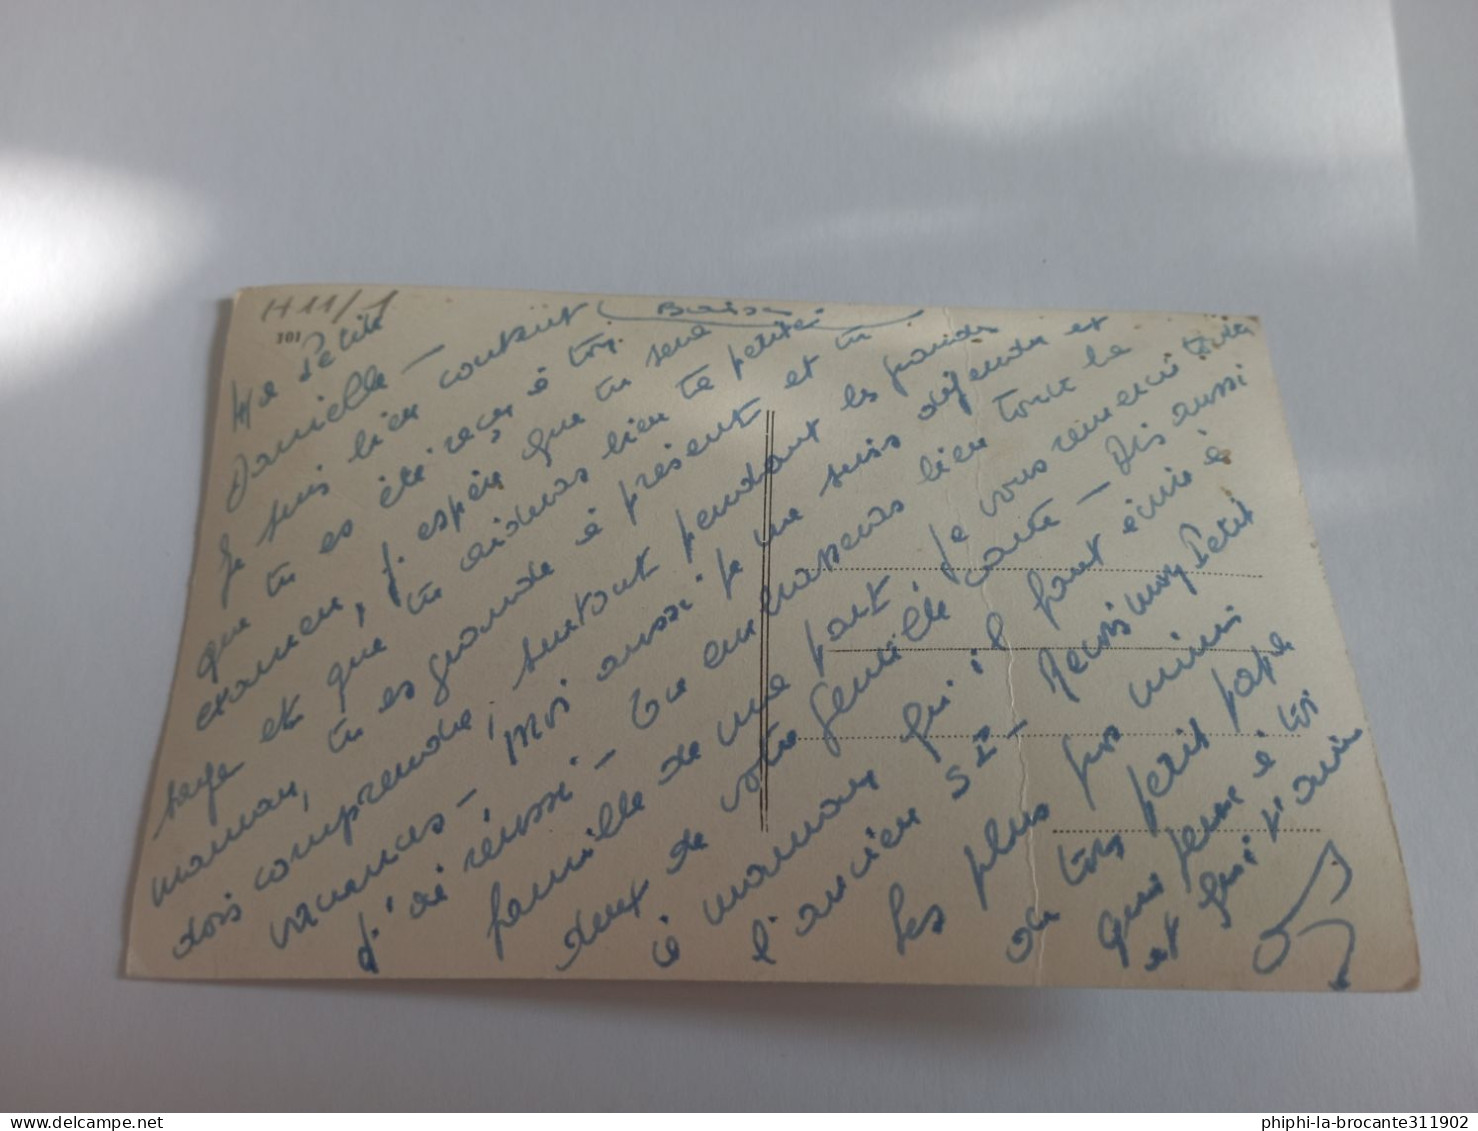 H 11/1
101
Baisers
Ma Petite
Danielle —
Je suis bien content
que tu es été reçu à ton
examen, j'espère que tu sera
sage et que tu aideras bien ta petite
maman, tu es grande à présent et tu
dois comprendre, surtout pendant les grandes
vacances — moi aussi je me suis défendu et
j'ai réussi — Tu embrasseras bien toute la
famille de ma part, je vous remercie toutes
deux de votre gentille carte — Dis aussi
à maman qu'il faut écrire à
l'ancien — Reçois mon Petit
les plus gros mimis
de ton petit papa
qui pense à toi
et qui t'aime
phiphi-la-brocante311902
www.delcampe.net